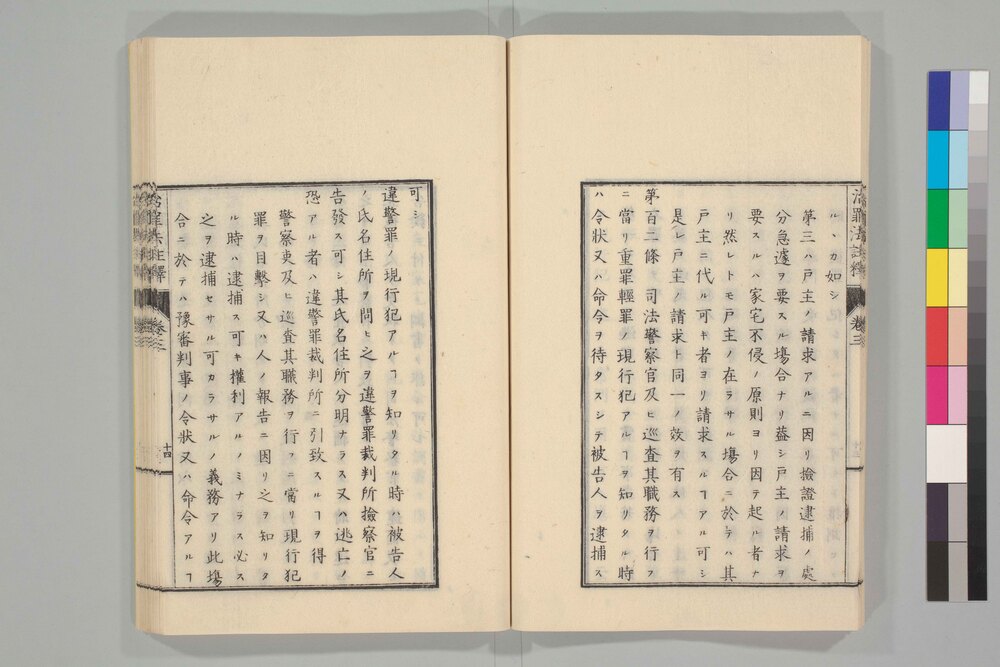 治罪法註釋 卷三
ルヽカ如シ
第三ハ戸主ノ請求アルニ因リ撿證逮捕ノ處
分急遽ヲ要スル塲合ナリ葢シ戸主ノ請求ヲ
要スルハ家宅不侵ノ原則ヨリ因テ起ル者ナ
リ然レトモ戸主ノ在ラサル塲合ニ於テハ其
戸主ニ代ル可キ者ヨリ請求スルヿアル可シ
是レ戸主ノ請求ト同一ノ效ヲ有ス
第百二條 司法警察官及ヒ巡査其職務ヲ行フ
ニ當リ重罪輕罪ノ現行犯アルヿヲ知リタル時
ハ令狀又ハ命令ヲ待タスシテ被告人ヲ逮捕ス
可シ
違警罪ノ現行犯アルヿヲ知リタル時ハ被告人
ノ氏名住所ヲ問ヒ之ヲ違警罪裁判所撿察官ニ
告發ス可シ其氏名住所分明ナラス又ハ逃亡ノ
恐アル者ハ違警罪裁判所ニ引致スルヿヲ得
警察吏及ヒ巡査其職務ヲ行フニ當リ現行犯
罪ヲ目擊シ又ハ人ノ報告ニ因リ之ヲ知リタ
ル時ハ逮捕ス可キ權利アルノミナラス必ス
之ヲ逮捕セサル可カラサルノ義務アリ此塲
合ニ於テハ豫審判事ノ令狀又ハ命令アルヿ
治罪法註釋 卷三 十四